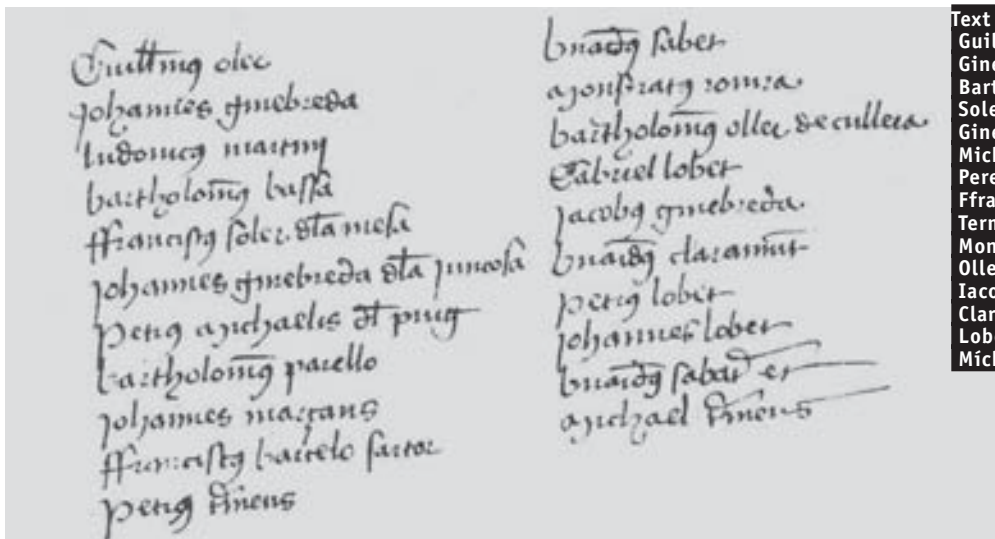 Guillmus oler
johannes ginebreda
ludovicus martiny
bartholomeus bassa
ffranciscus soler dla mesa
johannes ginebreda dla juncosa
petrus michaelis dl puig
bartholomeus parello
johannes marçans
ffranciscus barcelo sartor
petrus
bnardus saber
monserratus
bartholomeus oller de cullera
Gabriel lober
jacobus ginebreda
bnardus claramunt
petrus lober
johannes lober
bnardus sabar er
michael
Text
Guil
Gine
Bart
Sole
Gine
Mich
Pere
Ffra
Tern
Mon
Olle
Iaco
Clar
Lob
Mich